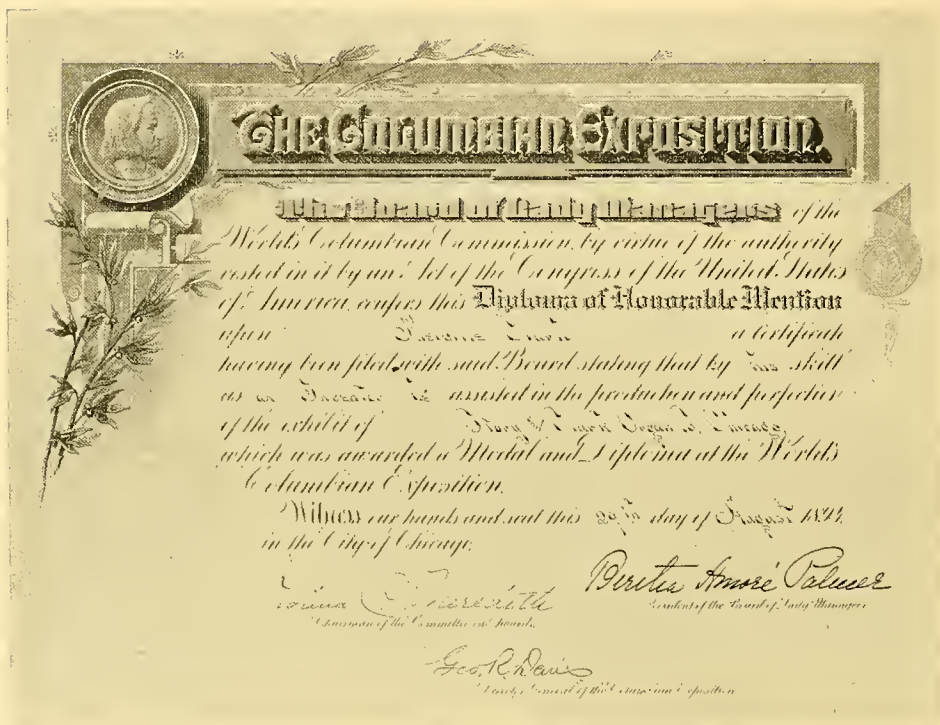 THE COLUMBIAN EXPOSITION.
The Board of Lady Managers of the
World's Columbian Commission, by virtue of the authority
vested in it by an Act of the Congress of the United States
of America, confers this Diploma of Honorable Mention
upon a certificate
having been filed with said Board stating that by his skill
as an Inventor he assisted in the production and perfection
of the exhibit of Story & Clark Organ Co. Chicago,
which was awarded a Medal and Diploma at the World's
Columbian Exposition.
Witness our hands and seal this 29th day of August 1894.
in the City of Chicago.
Meredith
Chairman of the Committee on Awards.
Bertha Honoré Palmer
President of the Board of Lady Managers
Geo. R. Davis
Director General of the Columbian Exposition